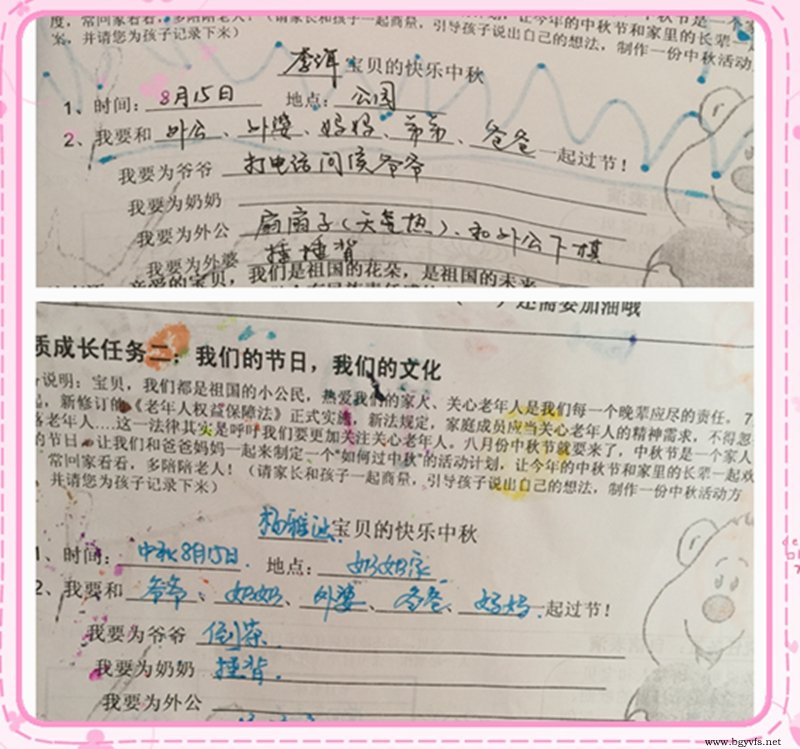 度，常回家看看，多陪陪老人！（请家长和孩子一起商量，引导孩子说出自己的想法，制作一份中秋活动
案，并请您为孩子记录下来）
宝贝的快乐中秋
1、时间：8月15日 地点：公园
2、我要和 外公、外婆、妈妈、弟弟、爸爸 一起过节！
我要为爷爷 打电话问候爷爷
我要为奶奶
我要为外公 扇扇子（天气热）、和外公下棋
我要为外婆 捶捶背
亲爱的宝贝，我们是祖国的花朵，是祖国的未来
还需要加油哦
质成长任务二：我们的节日，我们的文化
说明：宝贝，我们都是祖国的小公民，热爱我们的家人、关心老年人是我们每一个晚辈应尽的责任。7
新修订的《老年人权益保障法》正式实施，新法规定，家庭成员应当关心老年人的精神需求，不得忽
落老年人....这一法律其实是呼吁我们要更加关注关心老年人。八月份中秋节就要来了，中秋节是一个家人
的节日。让我们和爸爸妈妈一起来制定一个“如何过中秋”的活动计划，让今年的中秋节和家里的长辈一起欢
常回家看看，多陪陪老人！（请家长和孩子一起商量，引导孩子说出自己的想法，制作一份中秋活动方
并请您为孩子记录下来）
宝贝的快乐中秋
1、时间：中秋8月15日. 地点：奶奶家
2、我要和 爷爷、奶奶、外婆、爸爸、妈妈. 一起过节！
我要为爷爷 倒茶
我要为奶奶 捶背.
我要为外公
www.bgyvfs.net